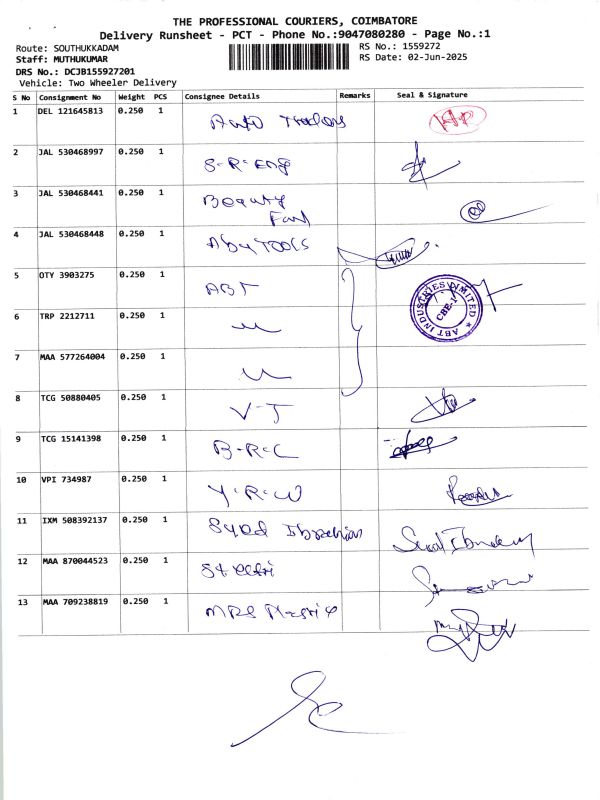 THE PROFESSIONAL COURIERS, COIMBATORE
Delivery Runsheet - PCT - Phone No.:9047080280 - Page No.:1
Route: SOUTHUKKADAM RS No.: 1559272
Staff: MUTHUKUMAR RS Date: 02-Jun-2025
DRS No.: DCJB155927201
Vehicle: Two Wheeler Delivery
S No Consignment No Weight PCS Consignee Details Remarks Seal & Signature
1 DEL 121645813 0.250 1 Auto Traders
2 JAL 530468997 0.250 1 S-R-Eng
3 JAL 530468441 0.250 1 Beauty
4 JAL 530468448 0.250 1 Abu Tools
5 OTY 3903275 0.250 1 ABT
ABT INDUSTRIES LIMITED CBE-1
6 TRP 2212711 0.250 1
7 MAA 577264004 0.250 1
8 TCG 50880405 0.250 1 V-J
9 TCG 15141398 0.250 1 B-R-C
10 VPI 734987 0.250 1 Y-R-W
11 IXM 508392137 0.250 1 Syed Ibrahim
12 MAA 870044523 0.250 1
13 MAA 709238819 0.250 1 MRS